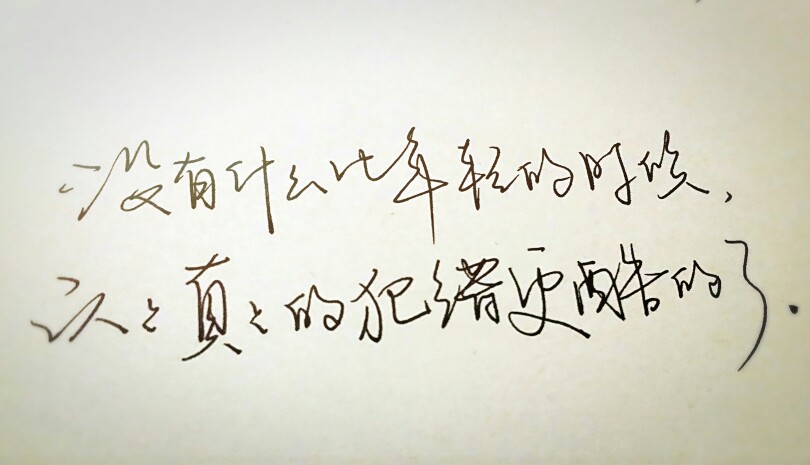 没有什么比年轻的时候，
认々真々的犯错更酷的了.